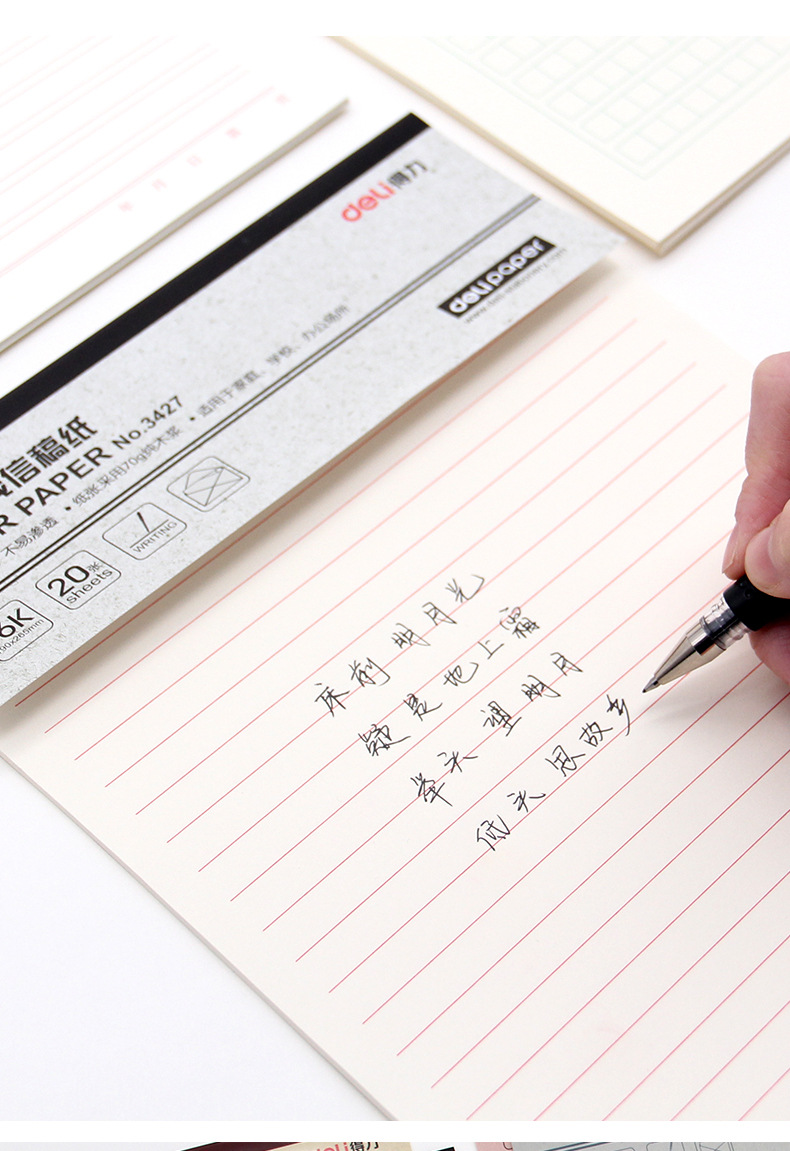 deli得力
deli paper
信稿纸
R PAPER No.3427
不易渗透 • 纸张采用70g纯木浆 • 适用于家庭、学校、办公场所
6K
20张
sheets
WRITING
床前明月光
疑是地上霜
举头望明月
低头思故乡
deli得力